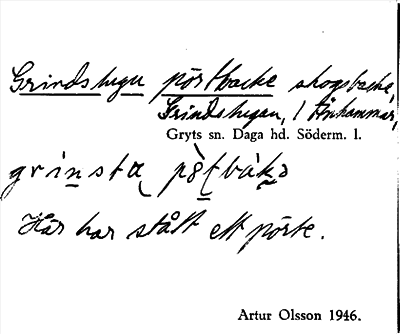 Grindstugu pörtbacke skogsbacke,
Grindstugan, 1 Änhammar,
Gryts sn. Daga hd. Söderm. l.
Här har stått ett pörte.
Artur Olsson 1946.